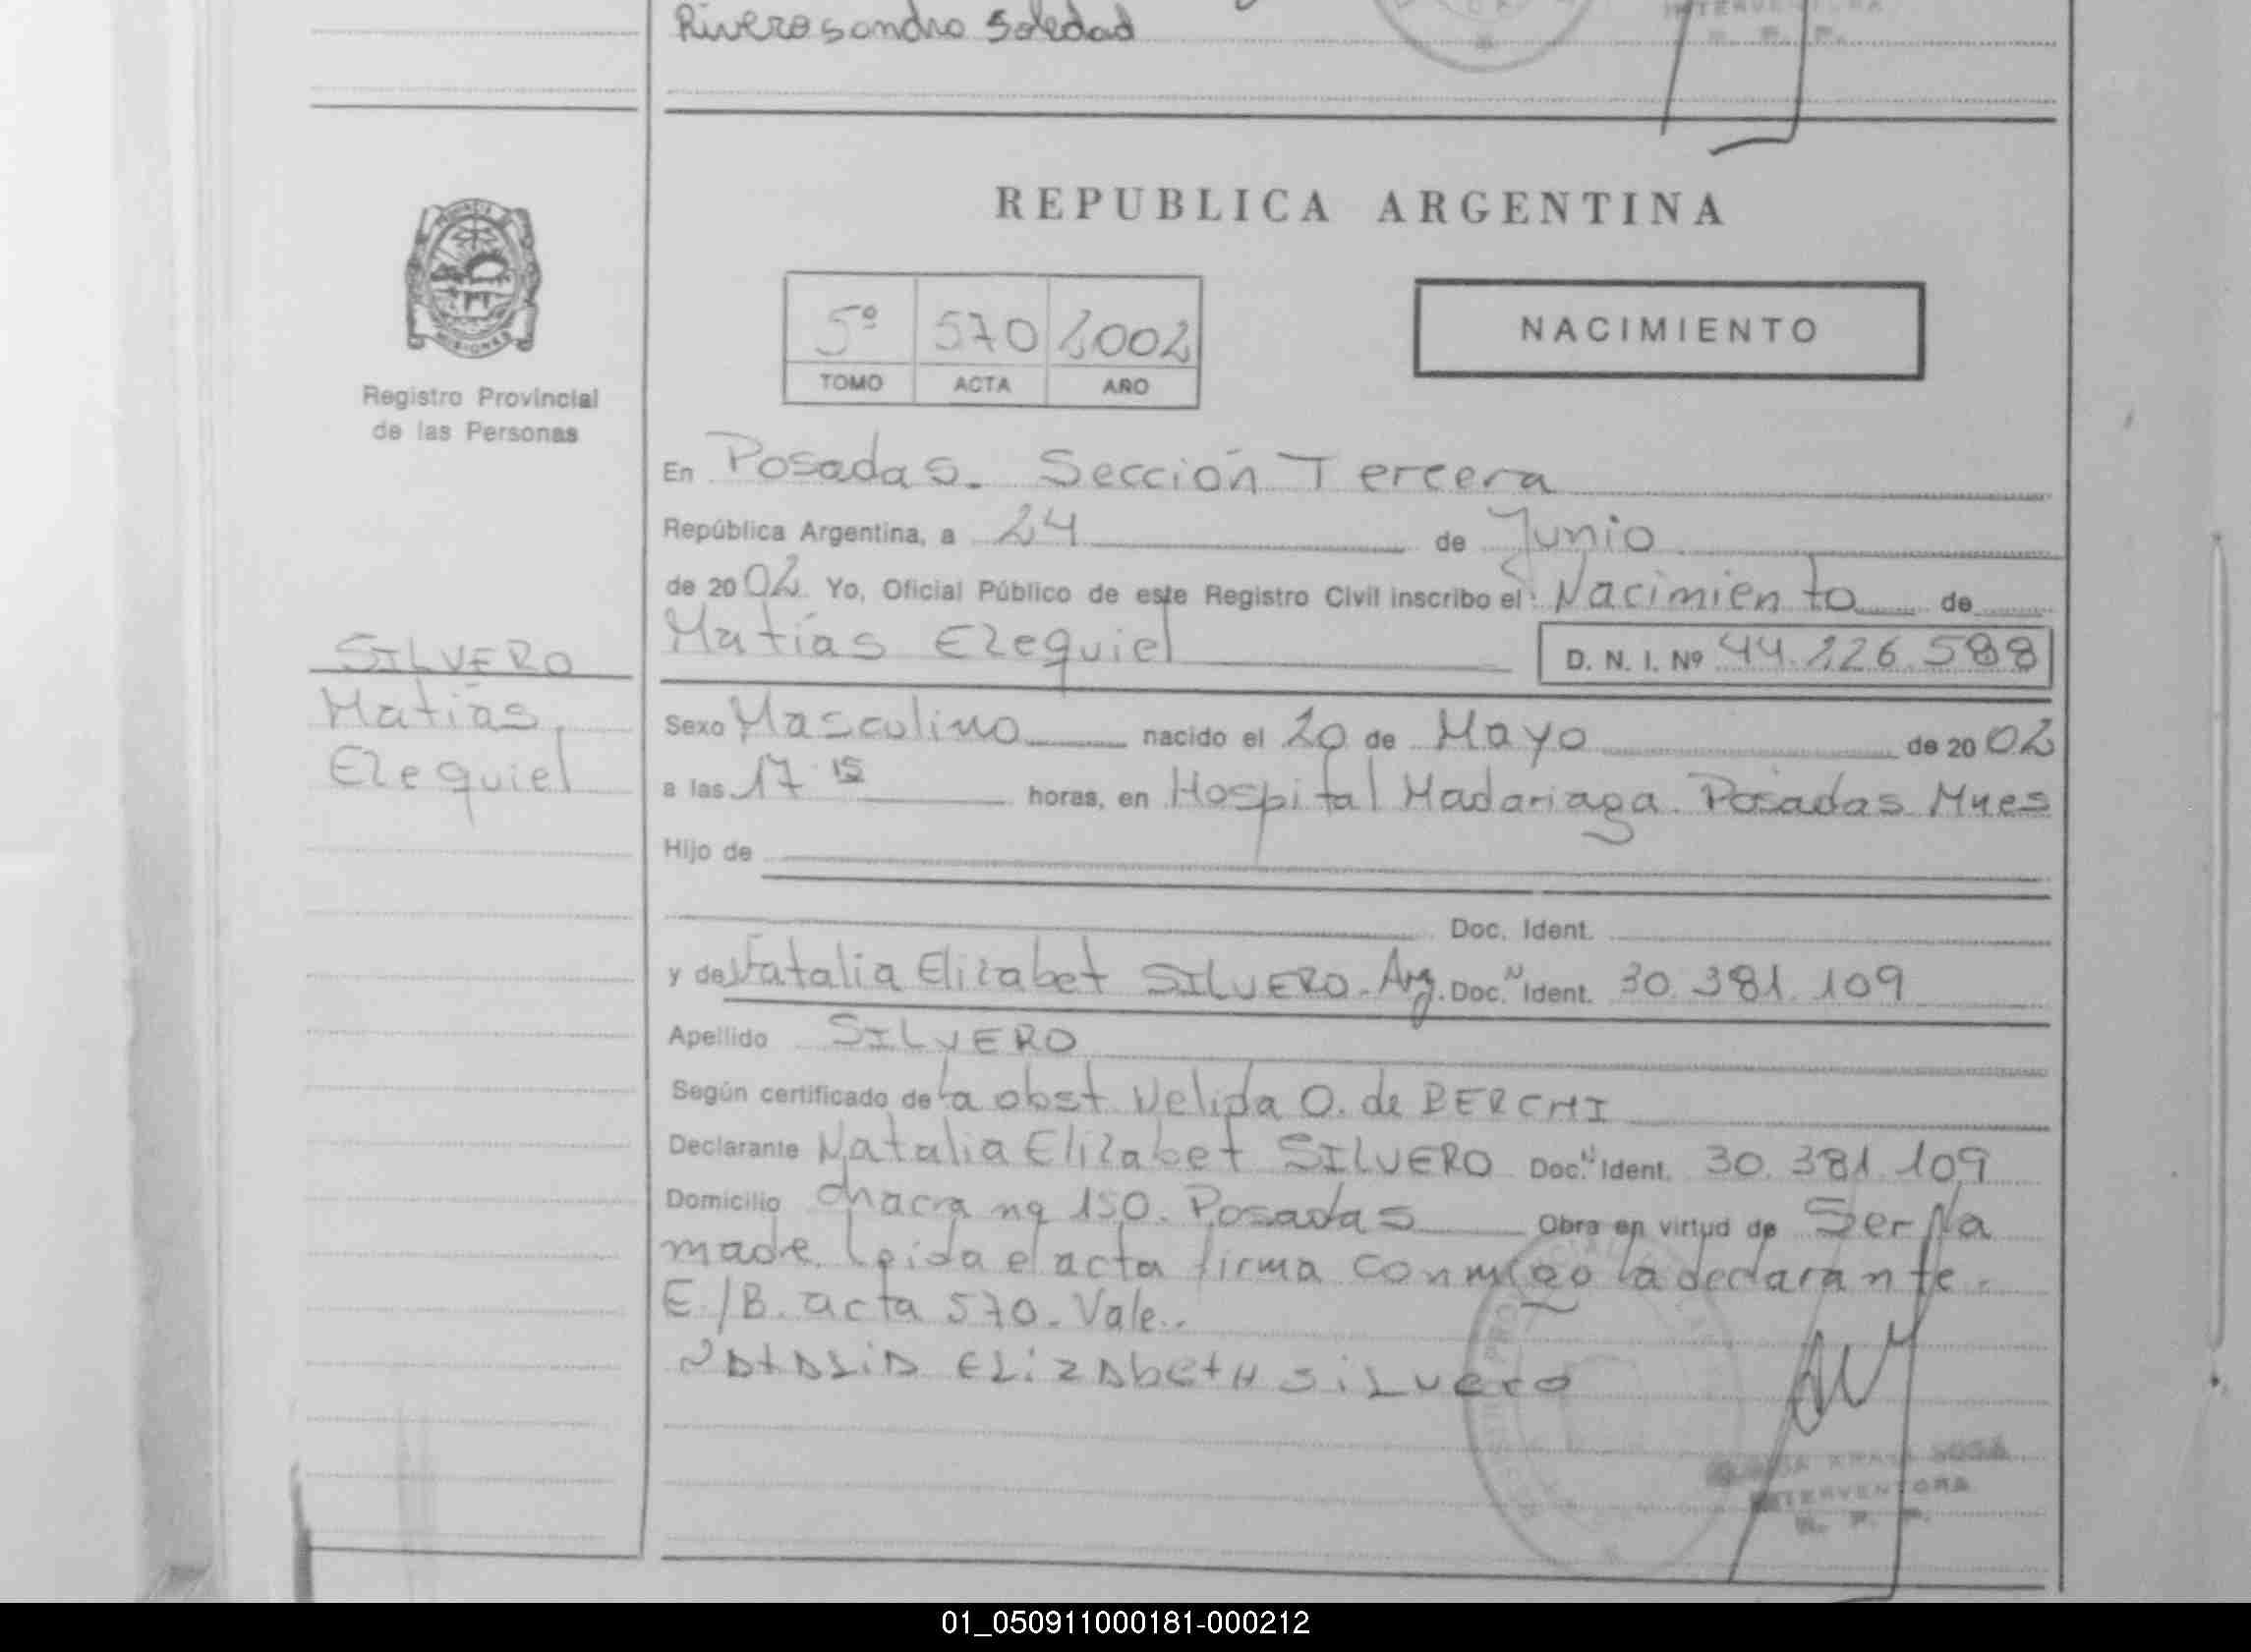 Rivero sandra Soledad
INTERVENTORA
REPUBLICA ARGENTINA
NACIMIENTO
5º 570 2002
TOMO ACTA AÑO
MISIONES
Registro Provincial
de las Personas
En Posadas. Sección Tercera
República Argentina, a 24 de Junio
de 2002 Yo, Oficial Público de este Registro Civil inscribo el Nacimiento de
Matías Ezequiel D. N. I. Nº 44.226.588
SILVERO
Matías
Ezequiel
Sexo Masculino nacido el 20 de Mayo de 2002
a las 17.15 horas, en Hospital Madariaga. Posadas Mnes
Hijo de
Doc. Ident.
y de Natalia Elizabet SILVERO. Arg. Doc. N Ident. 30.381.109
Apellido SILVERO
Según certificado de la obst. Nelida O. de BERCHI
Declarante Natalia Elizabet SILVERO Doc. N Ident. 30.381.109
Domicilio chacra nº 150. Posadas Obra en virtud de Ser la
madre. Leida el acta firma conmigo la declarante.
E/B. acta 570. Vale.
NAtALiA ELizAbetH SiLvero
SOSA
INTERVENTORA
R. P. P.
01_050911000181-000212